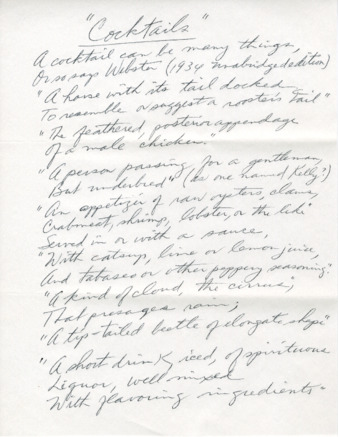 "Cocktails"
A cocktail can be many things,
Or so says Webster (1934 unabridged edition)
"A horse with its tail docked
To resemble or suggest a rooster's tail"
"The feathered, posterior appendage
of a male chicken."
"A person passing for a gentleman,
But underbred" (as one named Kelly?)
"An appetizer of raw oysters, clams,
Crabmeat, shrimp, lobster, or the like"
Served in or with a sauce,
"With catsup, lime or lemon juice,
And tabasco or other peppery seasoning".
"A kind of cloud, the cirrus,
That presages rain;
"A tip-tailed beetle of elongate shape"
"A short drink, iced, of spirituous
Liquor, well mixed
With flavoring ingredients"